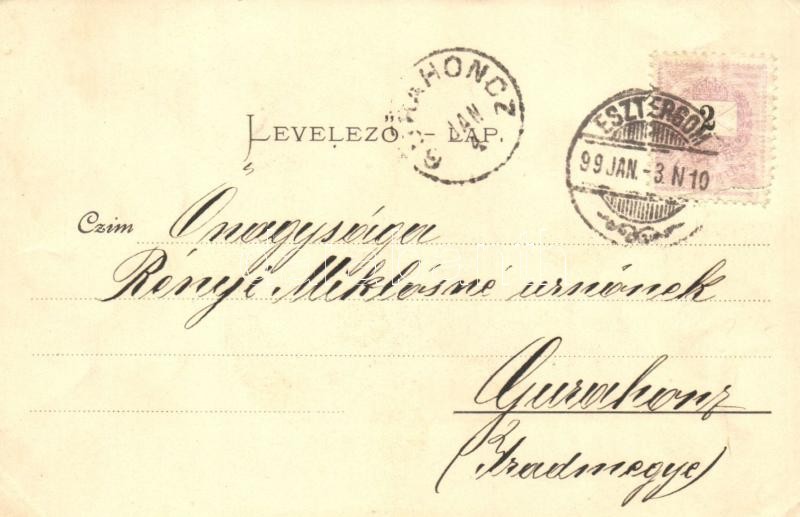 LEVELEZŐ - LAP.
GURAHONCZ
JAN
4
2
ESZTERGOM
99 JAN.-3. N 10
Czim Őnagysága
Rényi Miklósné urnőnek
Gurahonz
(Aradmegye)